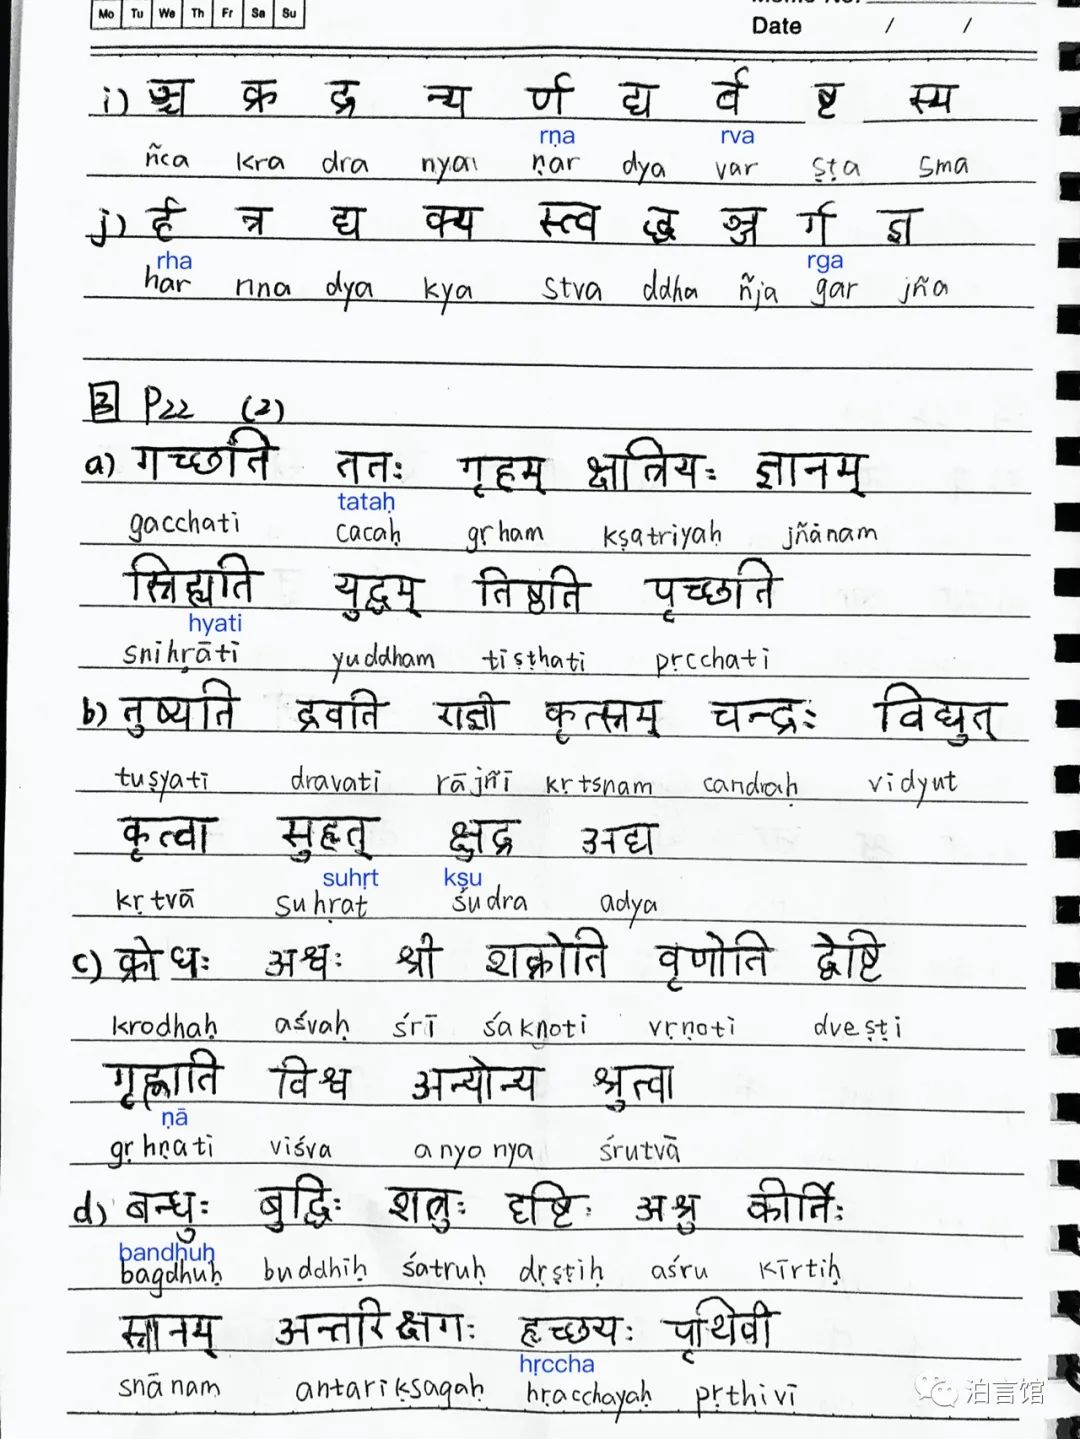 Mo Tu We Th Fr Sa Su
Date / /
i) ञ्च क्र द्र न्य र्ण द्य र्व ष्ट स्म
rṇa rva
ñca kra dra nya ṇar dya var ṣṭa sma
j) र्ह न्न द्य क्य स्त्व द्ध ञ्ज र्ग ज्ञ
rha rga
har nna dya kya stva ddha ñja gar jña
3 P22 (2)
a) गच्छति ततः गृहम् क्षत्रियः ज्ञानम्
tataḥ
gacchati cacaḥ gṛham kṣatriyaḥ jñānam
स्निह्यति युद्धम् तिष्ठति पृच्छति
hyati
snihṛāti yuddham tiṣṭhati pṛcchati
b) तुष्यति द्रवति राज्ञी कृत्स्नम् चन्द्रः विद्युत्
tuṣyati dravati rājñī kṛtsnam candraḥ vidyut
कृत्वा सुहृत् क्षुद्र अद्य
suhṛt kṣu
kṛtvā suhṛat śudra adya
c) क्रोधः अश्वः श्री शक्नोति वृणोति द्वेष्टि
krodhaḥ aśvaḥ śrī śaknoti vṛṇoti dveṣṭi
गृह्णाति विश्व अन्योन्य श्रुत्वा
ṇā
gṛhṇati viśva anyonya śrutvā
d) बन्धुः बुद्धिः शत्रुः दृष्टिः अश्रु कीर्तिः
bandhuḥ
bagdhuḥ buddhiḥ śatruḥ dṛṣṭiḥ aśru kīrtiḥ
स्नानम् अन्तरिक्षगः हृच्छयः पृथिवी
hṛccha
snānam antarikṣagaḥ hṛacchayaḥ pṛthivī
泊言馆